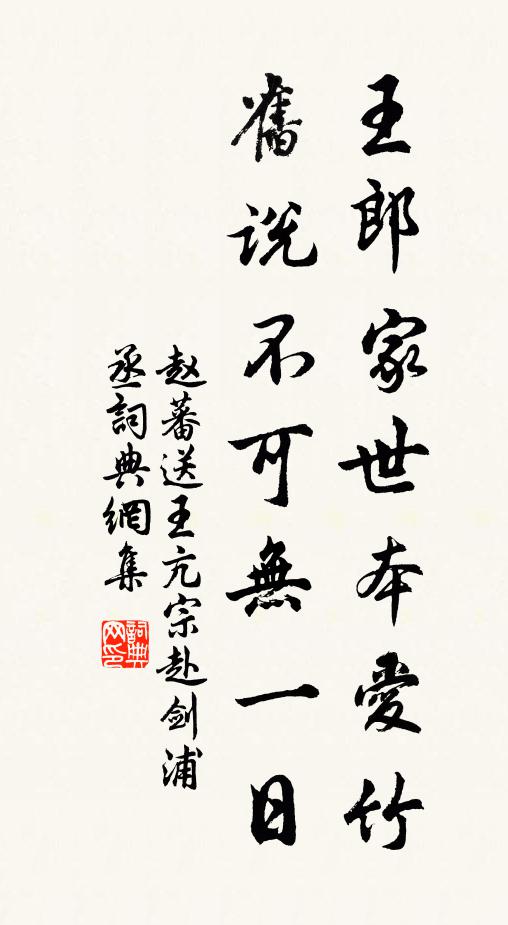 王郎家世本爱竹
舊説不可無一日
赵蕃送王亢宗赴剑浦
丞詞典網集
詞典
网印